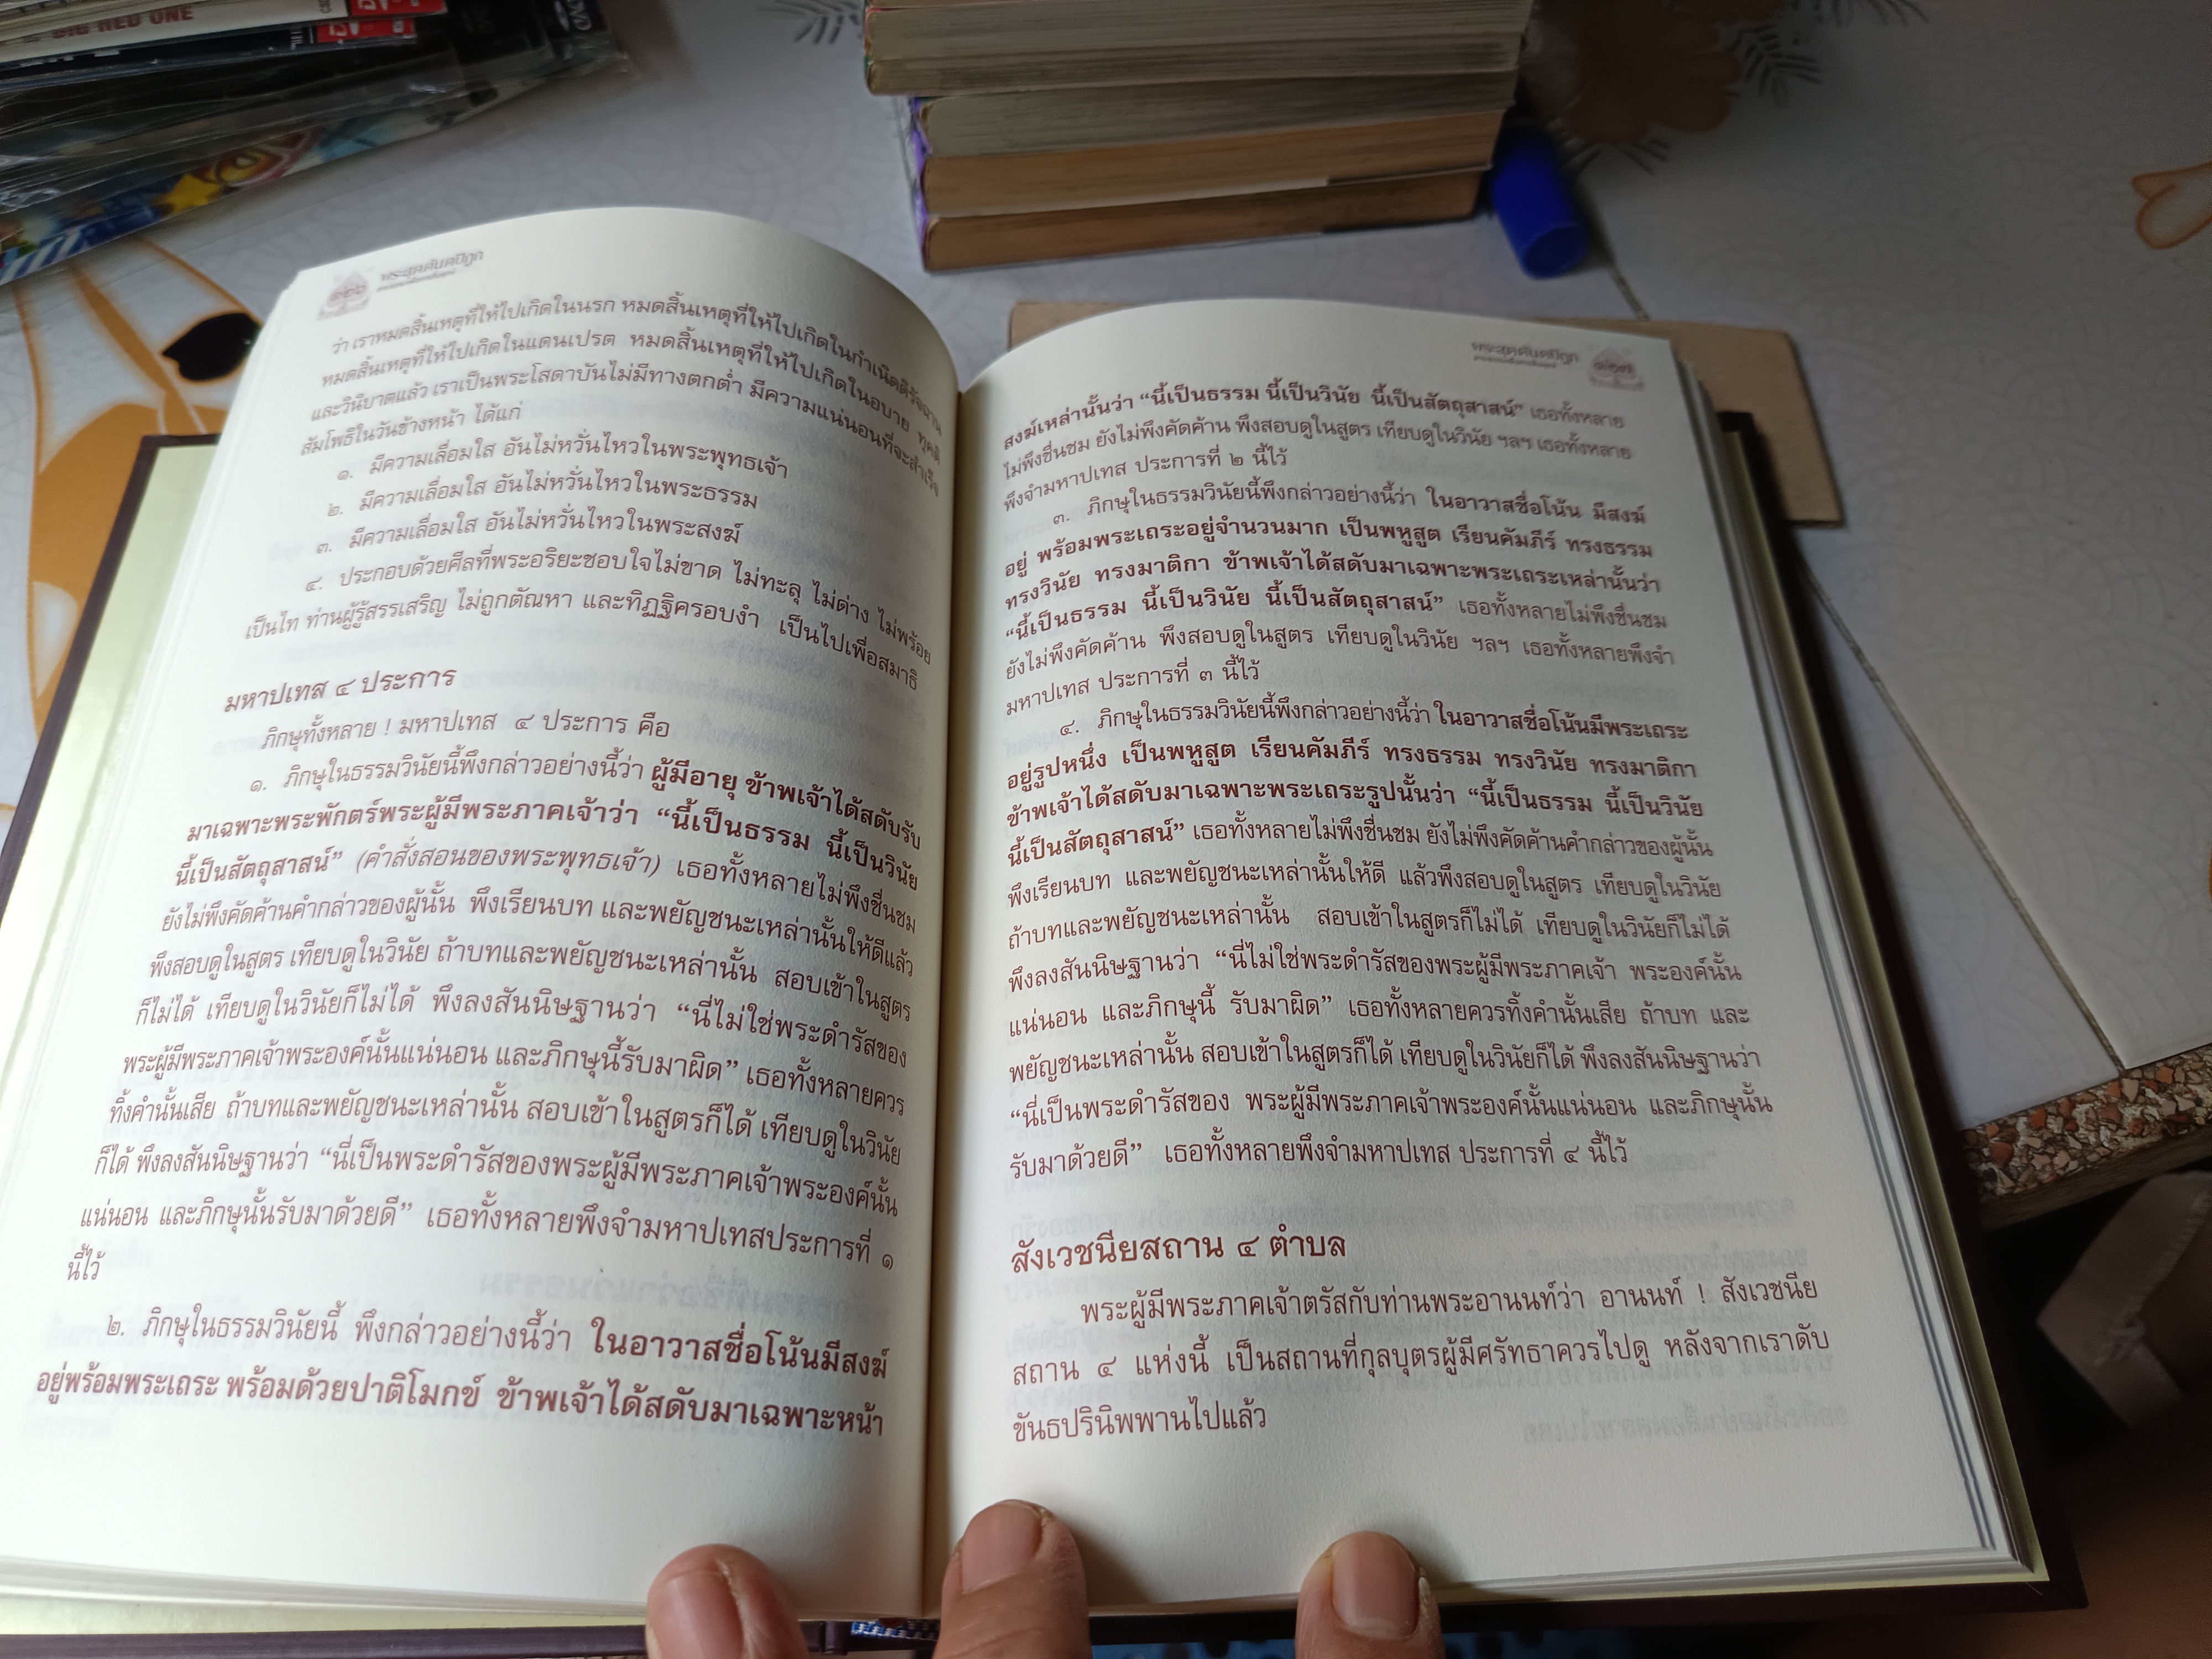 BIG RED ONE
๑๒๖
พระสุตตันตปิฎก
ว่า เราหมดสิ้นเหตุที่ให้ไปเกิดในนรก หมดสิ้นเหตุที่ให้ไปเกิดในกำเนิดดิรัจฉาน
หมดสิ้นเหตุที่ให้ไปเกิดในแดนเปรต หมดสิ้นเหตุที่ให้ไปเกิดในอบาย ทุคติ
และวินิบาตแล้ว เราเป็นพระโสดาบันไม่มีทางตกต่ำ มีความแน่นอนที่จะสำเร็จ
สัมโพธิในวันข้างหน้า ได้แก่
๑. มีความเลื่อมใส อันไม่หวั่นไหวในพระพุทธเจ้า
๒. มีความเลื่อมใส อันไม่หวั่นไหวในพระธรรม
๓. มีความเลื่อมใส อันไม่หวั่นไหวในพระสงฆ์
๔. ประกอบด้วยศีลที่พระอริยะชอบใจไม่ขาด ไม่ทะลุ ไม่ด่าง ไม่พร้อย
เป็นไท ท่านผู้รู้สรรเสริญ ไม่ถูกตัณหา และทิฏฐิครอบงำ เป็นไปเพื่อสมาธิ
มหาปเทส ๔ ประการ
ภิกษุทั้งหลาย ! มหาปเทส ๔ ประการ คือ
๑. ภิกษุในธรรมวินัยนี้พึงกล่าวอย่างนี้ว่า ผู้มีอายุ ข้าพเจ้าได้สดับรับ
มาเฉพาะพระพักตร์พระผู้มีพระภาคเจ้าว่า “นี้เป็นธรรม นี้เป็นวินัย
นี้เป็นสัตถุสาสน์” (คำสั่งสอนของพระพุทธเจ้า) เธอทั้งหลายไม่พึงชื่นชม
ยังไม่พึงคัดค้านคำกล่าวของผู้นั้น พึงเรียนบท และพยัญชนะเหล่านั้นให้ดีแล้ว
พึงสอบดูในสูตร เทียบดูในวินัย ถ้าบทและพยัญชนะเหล่านั้น สอบเข้าในสูตร
ก็ไม่ได้ เทียบดูในวินัยก็ไม่ได้ พึงลงสันนิษฐานว่า “นี่ไม่ใช่พระดำรัสของ
พระผู้มีพระภาคเจ้าพระองค์นั้นแน่นอน และภิกษุนี้รับมาผิด” เธอทั้งหลายควร
ทิ้งคำนั้นเสีย ถ้าบทและพยัญชนะเหล่านั้น สอบเข้าในสูตรก็ได้ เทียบดูในวินัย
ก็ได้ พึงลงสันนิษฐานว่า “นี่เป็นพระดำรัสของพระผู้มีพระภาคเจ้าพระองค์นั้น
แน่นอน และภิกษุนั้นรับมาด้วยดี” เธอทั้งหลายพึงจำมหาปเทสประการที่ ๑
นี้ไว้
๒. ภิกษุในธรรมวินัยนี้ พึงกล่าวอย่างนี้ว่า ในอาวาสชื่อโน้นมีสงฆ์
อยู่พร้อมพระเถระ พร้อมด้วยปาติโมกข์ ข้าพเจ้าได้สดับมาเฉพาะหน้า
พระสุตตันตปิฎก
๑๒๗
สงฆ์เหล่านั้นว่า “นี้เป็นธรรม นี้เป็นวินัย นี้เป็นสัตถุสาสน์” เธอทั้งหลาย
ไม่พึงชื่นชม ยังไม่พึงคัดค้าน พึงสอบดูในสูตร เทียบดูในวินัย ฯลฯ เธอทั้งหลาย
พึงจำมหาปเทส ประการที่ ๒ นี้ไว้
๓. ภิกษุในธรรมวินัยนี้พึงกล่าวอย่างนี้ว่า ในอาวาสชื่อโน้น มีสงฆ์
อยู่ พร้อมพระเถระอยู่จำนวนมาก เป็นพหูสูต เรียนคัมภีร์ ทรงธรรม
ทรงวินัย ทรงมาติกา ข้าพเจ้าได้สดับมาเฉพาะพระเถระเหล่านั้นว่า
“นี้เป็นธรรม นี้เป็นวินัย นี้เป็นสัตถุสาสน์” เธอทั้งหลายไม่พึงชื่นชม
ยังไม่พึงคัดค้าน พึงสอบดูในสูตร เทียบดูในวินัย ฯลฯ เธอทั้งหลายพึงจำ
มหาปเทส ประการที่ ๓ นี้ไว้
๔. ภิกษุในธรรมวินัยนี้พึงกล่าวอย่างนี้ว่า ในอาวาสชื่อโน้นมีพระเถระ
อยู่รูปหนึ่ง เป็นพหูสูต เรียนคัมภีร์ ทรงธรรม ทรงวินัย ทรงมาติกา
ข้าพเจ้าได้สดับมาเฉพาะพระเถระรูปนั้นว่า “นี้เป็นธรรม นี้เป็นวินัย
นี้เป็นสัตถุสาสน์” เธอทั้งหลายไม่พึงชื่นชม ยังไม่พึงคัดค้านคำกล่าวของผู้นั้น
พึงเรียนบท และพยัญชนะเหล่านั้นให้ดี แล้วพึงสอบดูในสูตร เทียบดูในวินัย
ถ้าบทและพยัญชนะเหล่านั้น สอบเข้าในสูตรก็ไม่ได้ เทียบดูในวินัยก็ไม่ได้
พึงลงสันนิษฐานว่า “นี่ไม่ใช่พระดำรัสของพระผู้มีพระภาคเจ้า พระองค์นั้น
แน่นอน และภิกษุนี้ รับมาผิด” เธอทั้งหลายควรทิ้งคำนั้นเสีย ถ้าบท และ
พยัญชนะเหล่านั้น สอบเข้าในสูตรก็ได้ เทียบดูในวินัยก็ได้ พึงลงสันนิษฐานว่า
“นี่เป็นพระดำรัสของ พระผู้มีพระภาคเจ้าพระองค์นั้นแน่นอน และภิกษุนั้น
รับมาด้วยดี” เธอทั้งหลายพึงจำมหาปเทส ประการที่ ๔ นี้ไว้
สังเวชนียสถาน ๔ ตำบล
พระผู้มีพระภาคเจ้าตรัสกับท่านพระอานนท์ว่า อานนท์ ! สังเวชนีย
สถาน ๔ แห่งนี้ เป็นสถานที่กุลบุตรผู้มีศรัทธาควรไปดู หลังจากเราดับ
ขันธปรินิพพานไปแล้ว